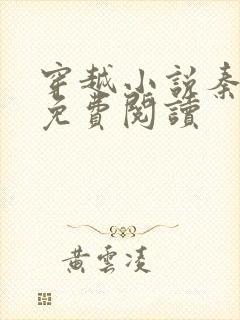 穿越小說秦
免費閱讀
黃雲凌